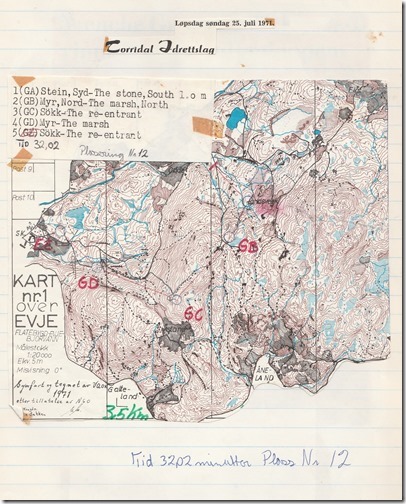 Løpsdag søndag 25. juli 1971.
Torridal Idrettslag
1(GA) Stein, Syd-The stone, South 1.o m
2(GB) Myr, Nord-The marsh, North
3(GC) Sökk-The re-entrant
4(GD) Myr-The marsh
5(GE) Sökk-The re-entrant
TID 32,02
Plassering Nr 12
Post 9
Post 10
GB
GD
GC
KART
nr 1
over
EVJE
Målestokk
1:20 000
Ekv. 5m
Misvisning 0°
1971
LAND
3.5 Km
Tid 3202 minutter Plass Nr 12